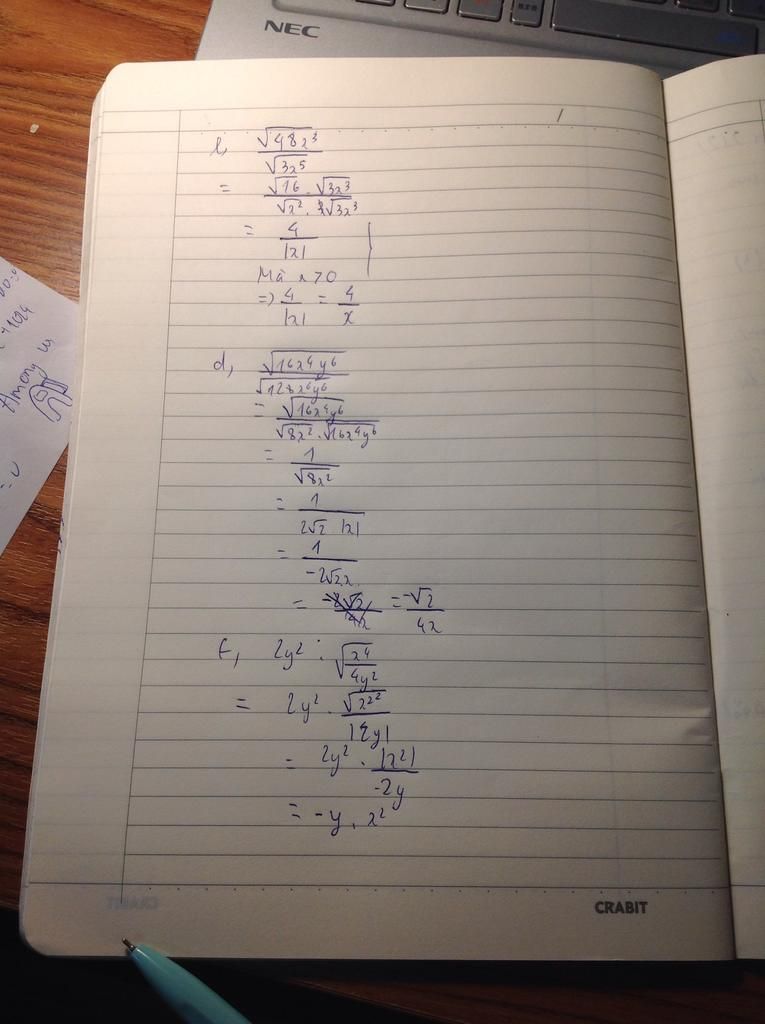 NEC
b, √48x³ / √3x⁵
= √16 . √3x³ / √x² . √3x³
= 4 / |x|
Mà x > 0
=> 4 / |x| = 4 / x
d, √16x⁴y⁶ / √128x⁶y⁶
= √16x⁴y⁶ / √8x² . √16x⁴y⁶
= 1 / √8x²
= 1 / 2√2 |x|
= 1 / -2√2x
= -√2 / 4x
f, 2y² . √x⁴ / 4y²
= 2y² . √x²² / |2y|
= 2y² . |x²| / -2y
= -y . x²
CRABIT
Among us